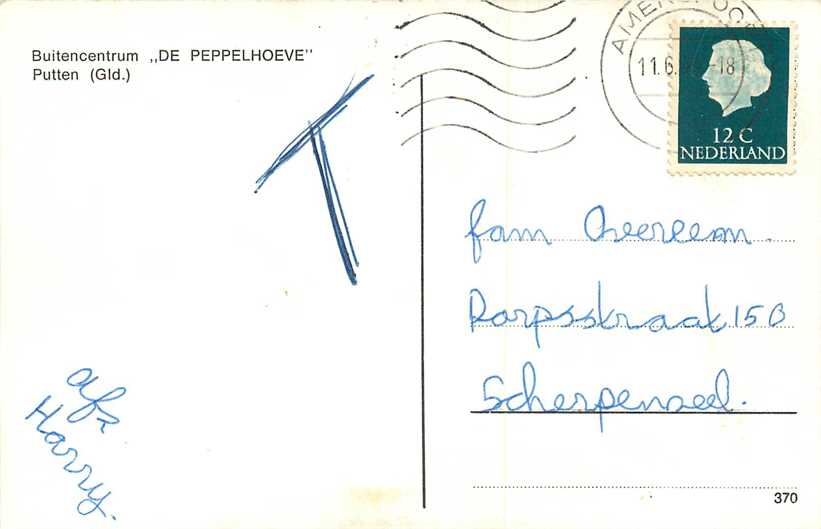 Buitencentrum „DE PEPPELHOEVE"
Putten (Gld.)
T
11.6. -18
12 C
NEDERLAND
fam Overeem.
Dorpsstraat 150
Scherpenzeel.
afz
Harry.
370